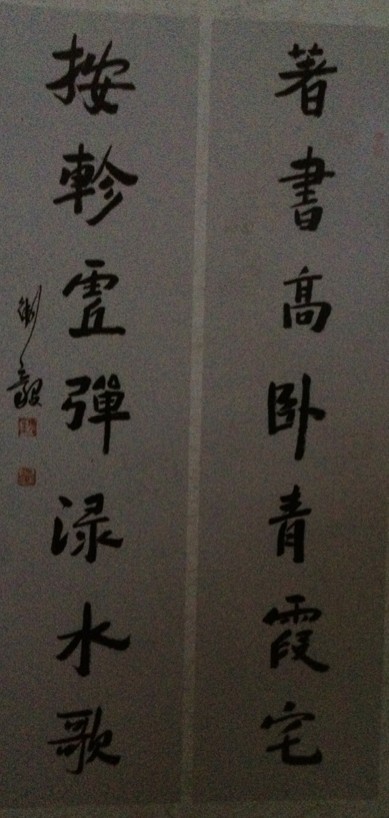 著書高卧青霞宅
按軫虛彈渌水歌